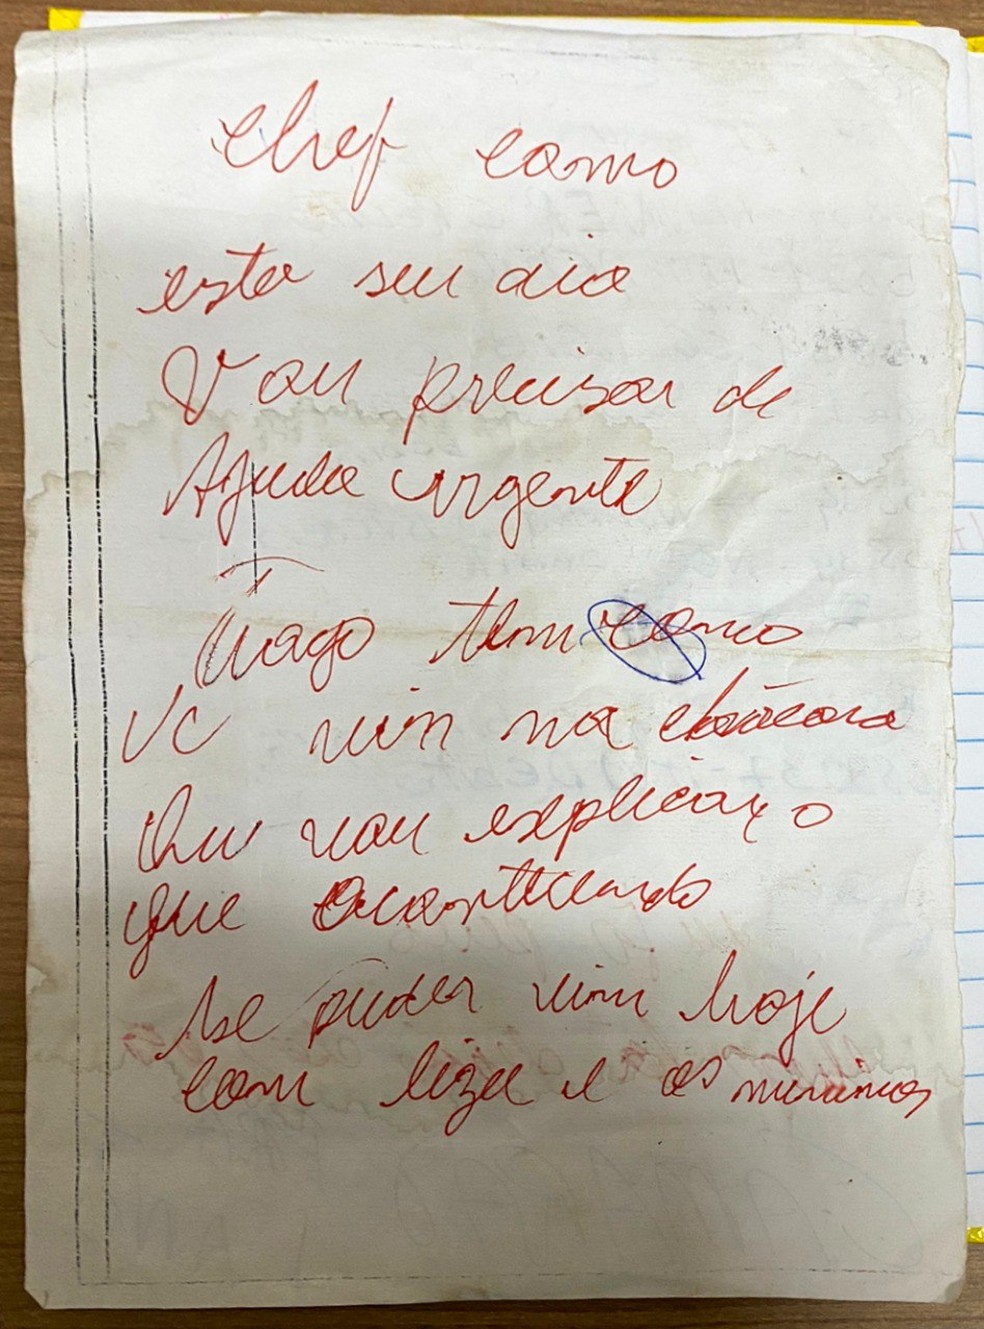 chef como
esta seu dia
Vou precisar de
Ajuda urgente
Tiago tem como
Vc vim na chácara
Que vou explicar o
que acontecendo
se puder vim hoje
com liza e os meninos